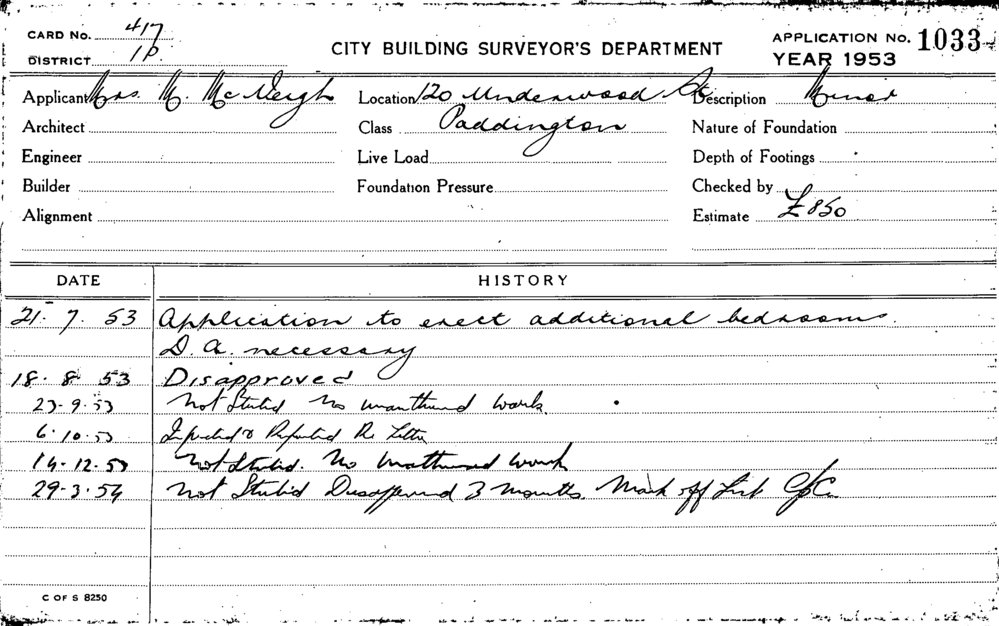 CARD NO. 417
DISTRICT 1P.
CITY BUILDING SURVEYOR'S DEPARTMENT
APPLICATION NO. 1033
YEAR 1953
Applicant Mrs. M. McVeigh
Location 120 Underwood St
Description Minor
Architect
Class Paddington
Nature of Foundation
Engineer
Live Load
Depth of Footings
Builder
Foundation Pressure
Checked by
Alignment
Estimate £850
DATE HISTORY
21. 7. 53 Application to erect additional bedrooms.
D. A. necessary
18. 8. 53 Disapproved
23.9.53 Not Started No unauthorised work.
6.10.53 Inspected & Reported Re Letter
14.12.53 Not Started. No unauthorised work
29.3.54 Not Started Disapproved 3 months. Mark off List
C OF S 8250